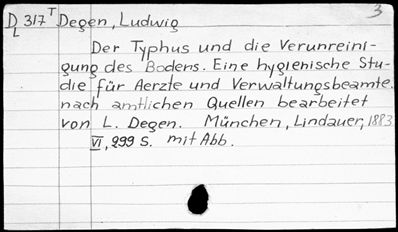 D 317 T Degen, Ludwig 3
L
Der Typhus und die Verunreini-
gung des Bodens. Eine hygienische Stu-
die für Aerzte und Verwaltungsbeamte.
nach amtlichen Quellen bearbeitet
von L. Degen. München, Lindauer, 1883
VI, 299 S. mit Abb.